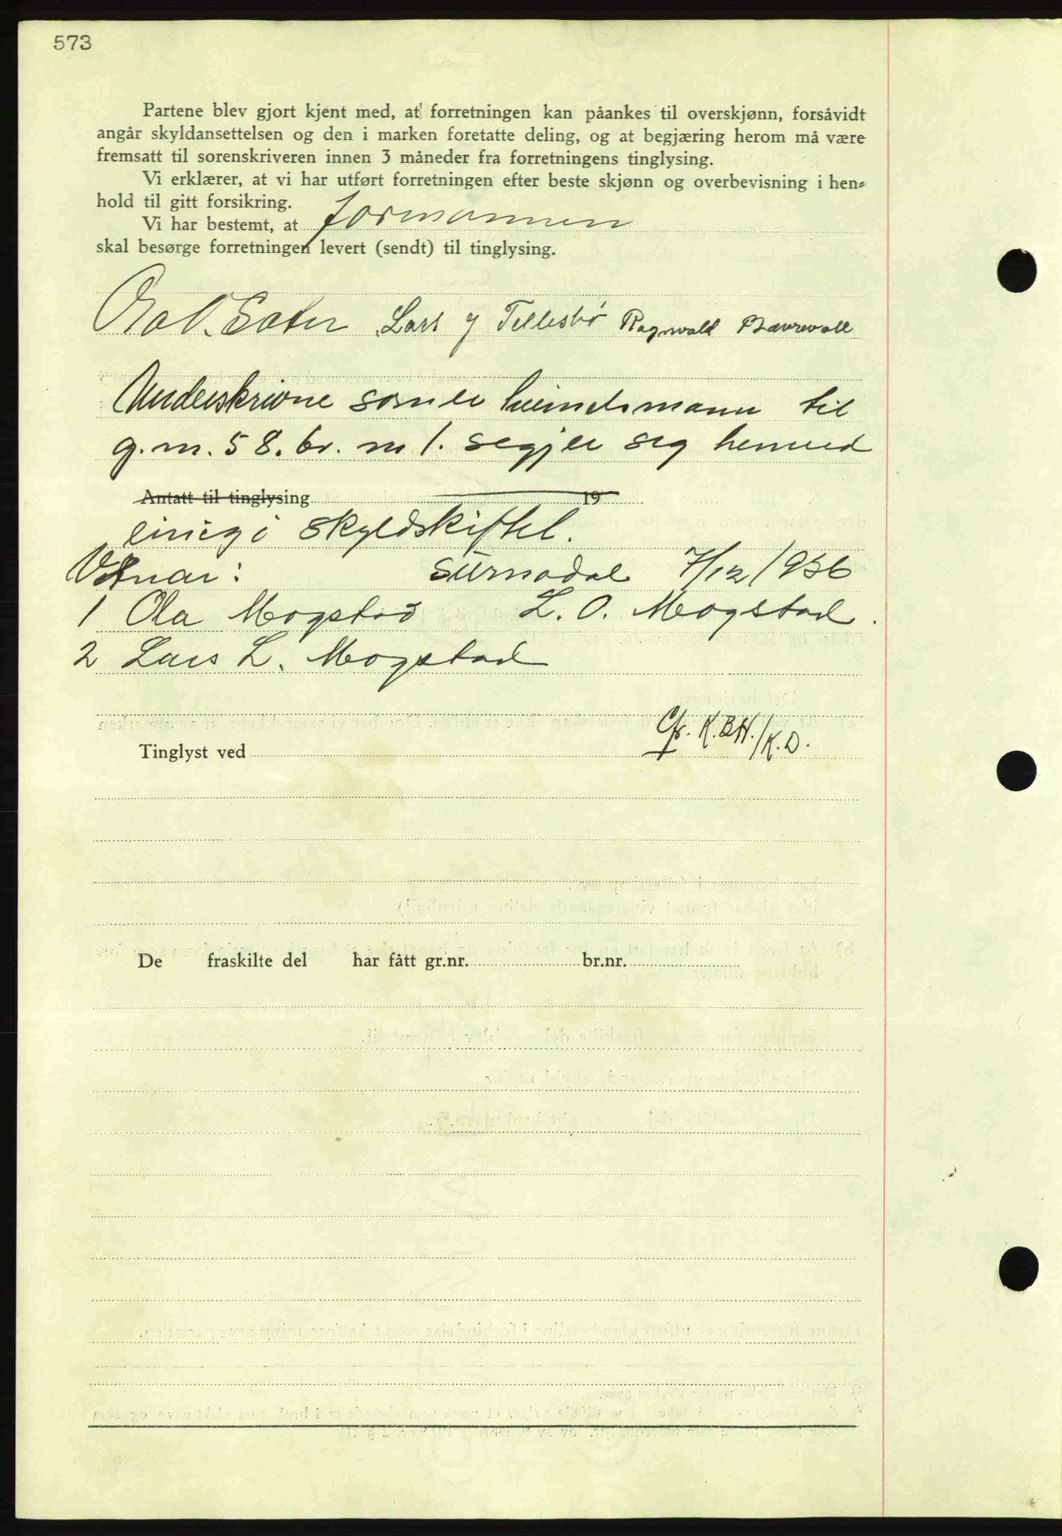 573
Partene blev gjort kjent med, at forretningen kan påankes til overskjønn, forsåvidt
angår skyldansettelsen og den i marken foretatte deling, og at begjæring herom må være
fremsatt til sorenskriveren innen 3 måneder fra forretningens tinglysing.
Vi erklærer, at vi har utført forretningen efter beste skjønn og overbevisning i hen-
hold til gitt forsikring.
Vi har bestemt, at formannen
skal besørge forretningen levert (sendt) til tinglysing.
Lars J Tellesbø Ragnvald Bævrevoll
Underskrivne som er heimelsmann til
g.nr. 58. br. nr 1. segjer seg hermed
Antatt til tinglysing 19
einig i skyldskiftet.
Vitnar: Surnadal 7/12 1936
1 Ola Mogstad L. O. Mogstad.
2 Lars L. Mogstad
K.BH./K.D.
Tinglyst ved
De fraskilte del har fått gr.nr. br.nr.